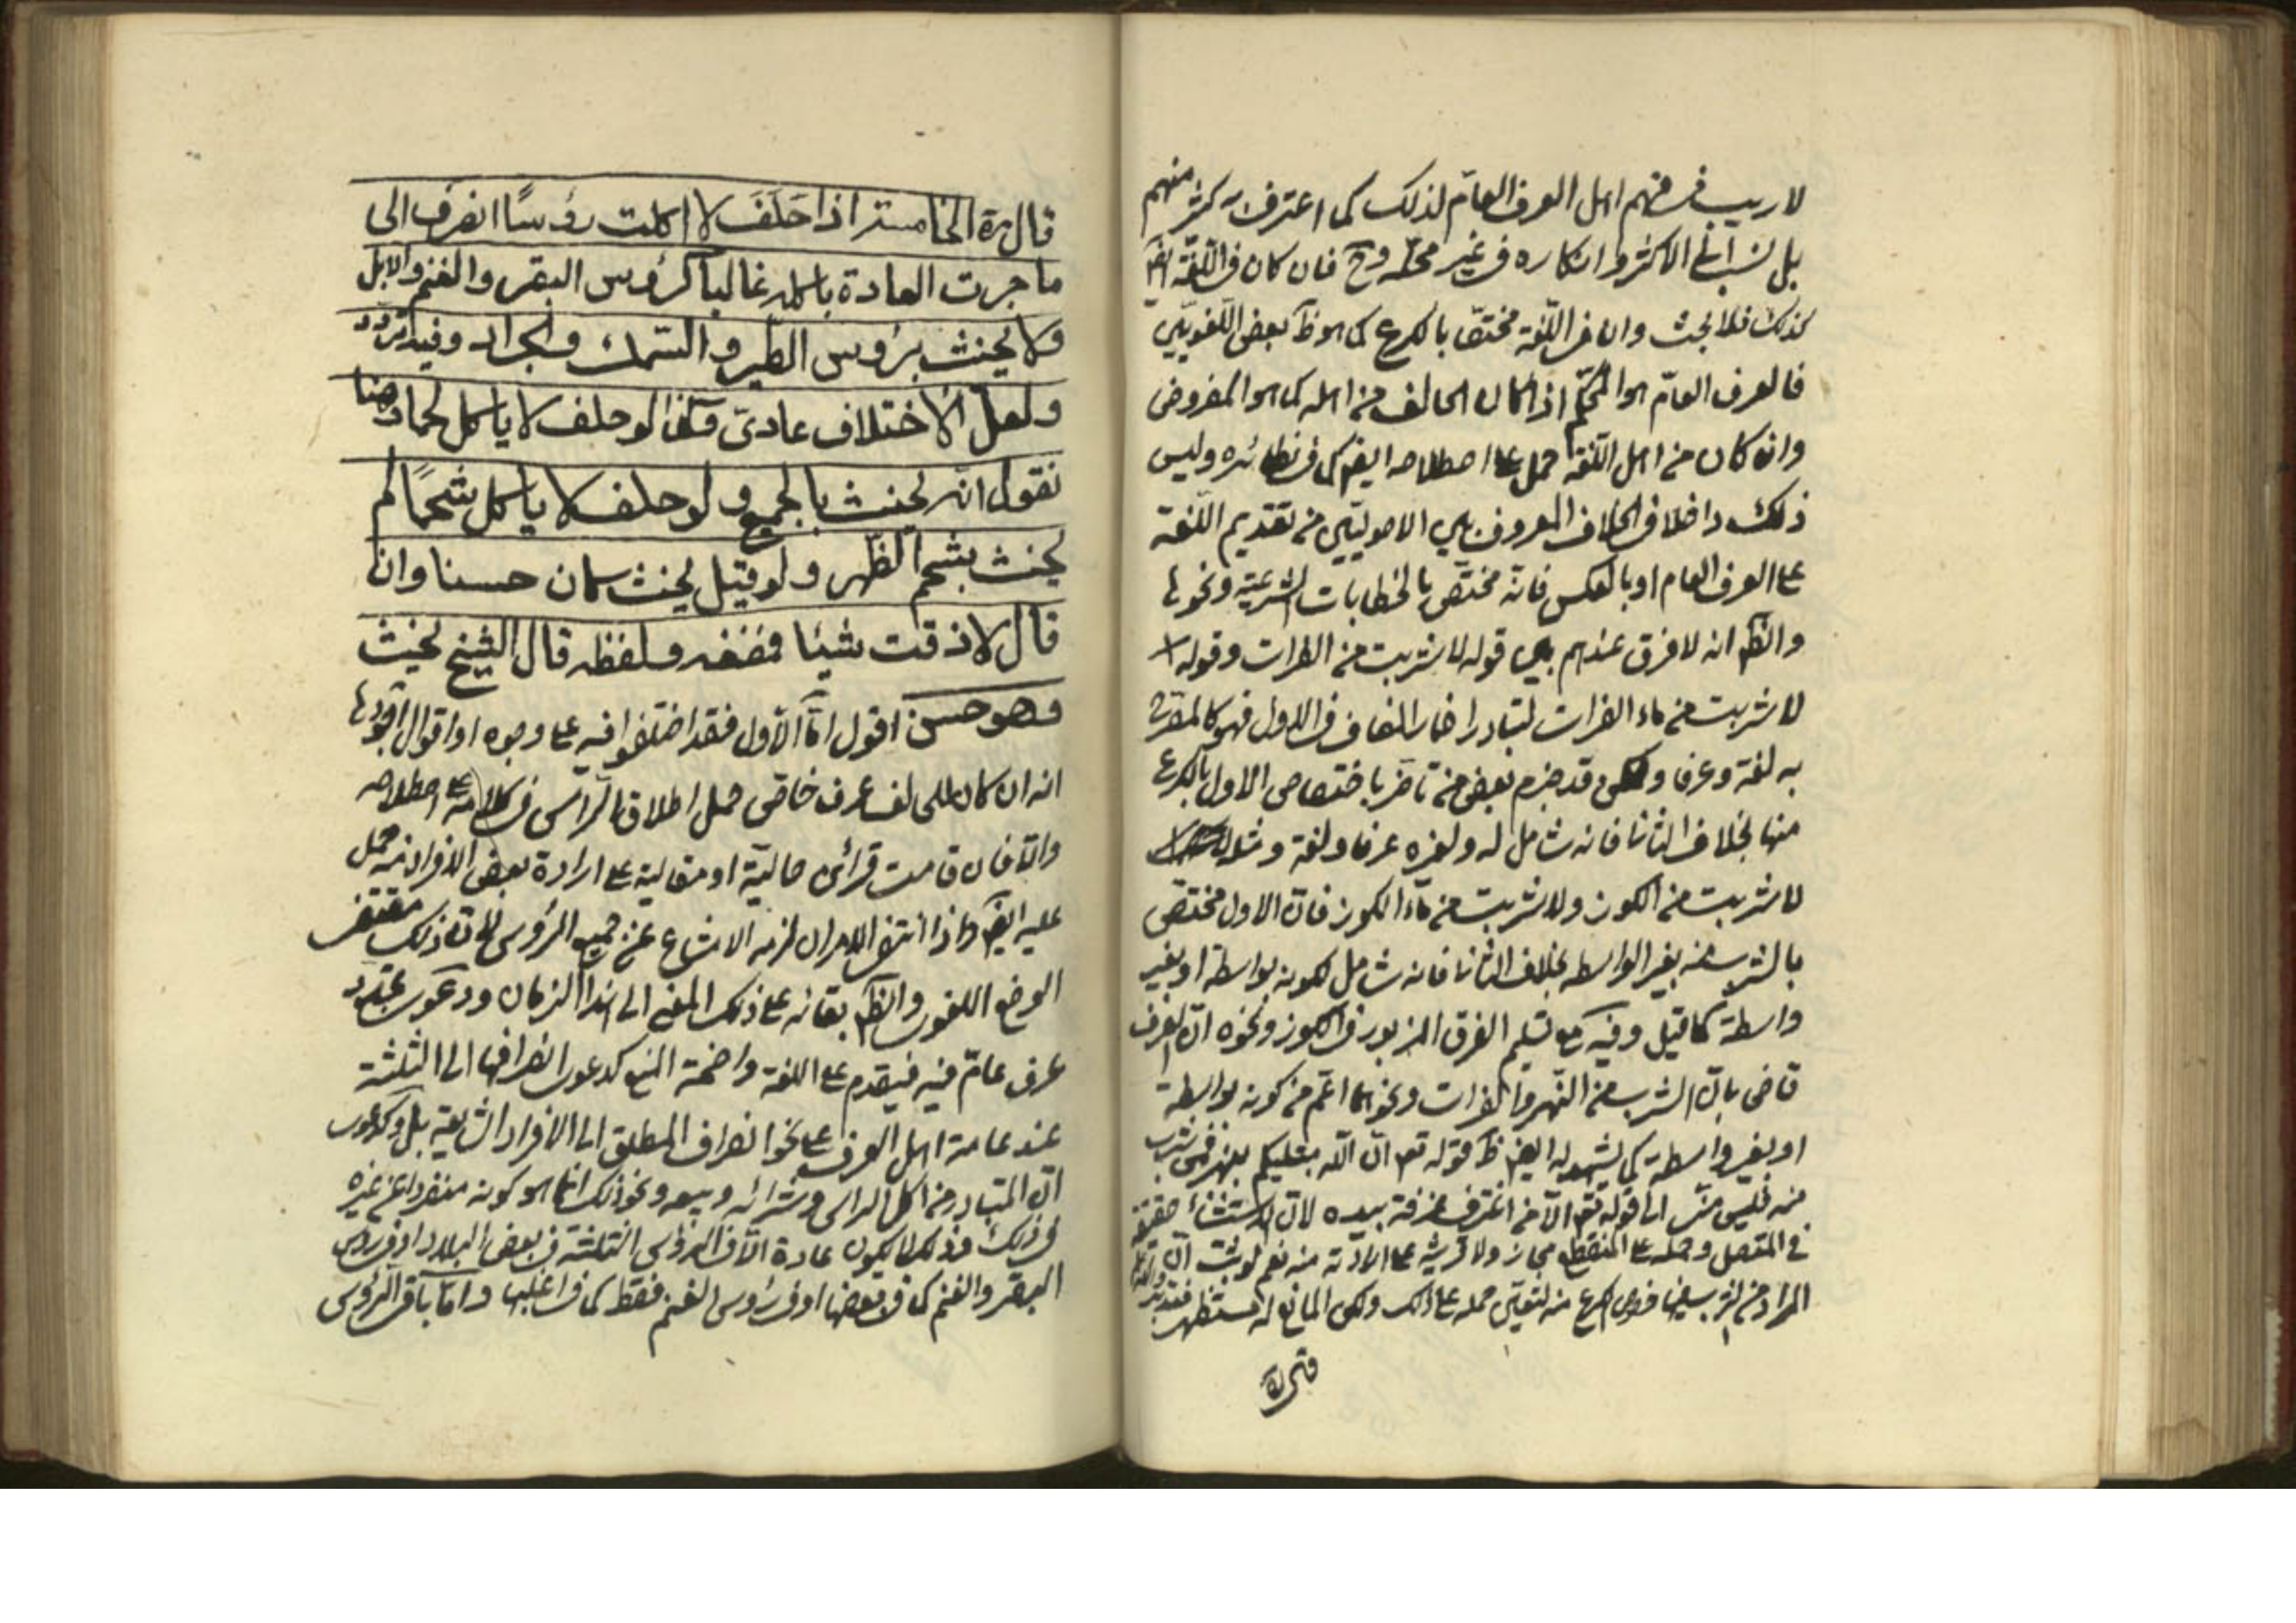 لا ريب في فهم اهل العرف العام لذلك كما اعترف به كثير منهم
بل نسب الى الاكثر وانكاره في غير محله وح فان كان في اللغة ايضا
كذلك فلا بحث وان في اللغة مختصا بالكرع كما هو ظ بعض اللغويين
فالعرف العام هو المحكم اذا كان الحالف من اهله كما هو المفروض
وان كان من اهل اللغة حمل على اصطلاحه ايضا كما في نظائره وليس
ذلك داخلا في الخلاف المعروف بين الاصوليين من تقديم اللغة
على العرف العام او بالعكس فانه مختص بالخطابات الشرعية ونحوها
والظ انه لا فرق عندهم بين قوله لا شربت من الفرات وقوله
لا شربت من ماء الفرات لتبادر اضمار المضاف في الاول فهو كالمصرح
به لغة وعرفا ولكن قد جزم بعض من تاخر باختصاص الاول بالكرع
منها بخلاف الثاني فانه شامل له ولغيره عرفا ولغة ومثله
لا شربت من الكوز ولا شربت من ماء الكوز فان الاول مختص
بالشرب منه بغير الواسطه بخلاف الثاني فانه شامل لكونه بواسطة او بغير
واسطة كما قيل وفيه مع تسليم الفرق المزبور في الكوز ونحوه ان العرف
قاض بان الشرب من النهر والفرات ونحوهما اعم من كونه بواسطة
او بغير واسطة كما يشهد له ايضا ظ قوله تعم ان الله مبتليكم بنهر فمن شرب
منه فليس مني الى قوله تعم الا من اغترف غرفة بيده لان الاستثناء حقيقة
في المتصل وحمله على المنقطع مجاز ولا قرينة على الارادة منه نعم لو ثبت ان
المراد من الشرب فيها خصوص الكرع منه لتعين حمله على ذلك ولكن المانع له مستظهر فتدبر
قال مرة الخامسة اذا حلف لا اكلت رؤسًا انصرف الى
ما جرت العادة باكله غالبا كرؤس البقر والغنم والابل
ولا يحنث برؤس الطير والسمك والجراد وفيه تردد
ولعل الاختلاف عادي وكذا لو حلف لا ياكل لحما وهنا
نقول انه يحنث بالجميع ولو حلف لا ياكل شحمًا لم
يحنث بشحم الظهر ولو قيل يحنث كان حسنا وان
قال لا ذقت شيئا فمضغه ولفظه قال الشيخ يحنث
وهو حسن اقول اما الاول فقد اختلفوا فيه على وجوه او اقوال اجودها
انه ان كان للحالف عرف خاص حمل اطلاق الراس في كلامه على اصطلاحه
والا فان قامت قرائن حالية او مقالية على ارادة بعض الافراد منه حمل
عليه ايضا واذا انتفى الامران لزمه الامتناع عن جميع الرؤس لان ذلك مقتضى
الوضع اللغوي والظ بقائه على ذلك المعنى الى هذا الزمان ودعوى تجدد
عرف عام فيه فيقدم على اللغة واضحة المنع كدعوى انصرافها الى الثلثة
عند عامة اهل العرف على نحو انصراف المطلق الى الافراد الشايعة بل وكدعوى
ان المتبادر من اكل الراس وشرائه وبيعه ونحو ذلك انما هو كونه منفردا عن غيره
في ذلك وذلك لا يكون عادة الا في الرؤس الثلثة في بعض البلاد او في رؤس
البقر والغنم كما في بعضها او في رؤس الغنم فقط كما في اغلبها واما باقي الرؤس